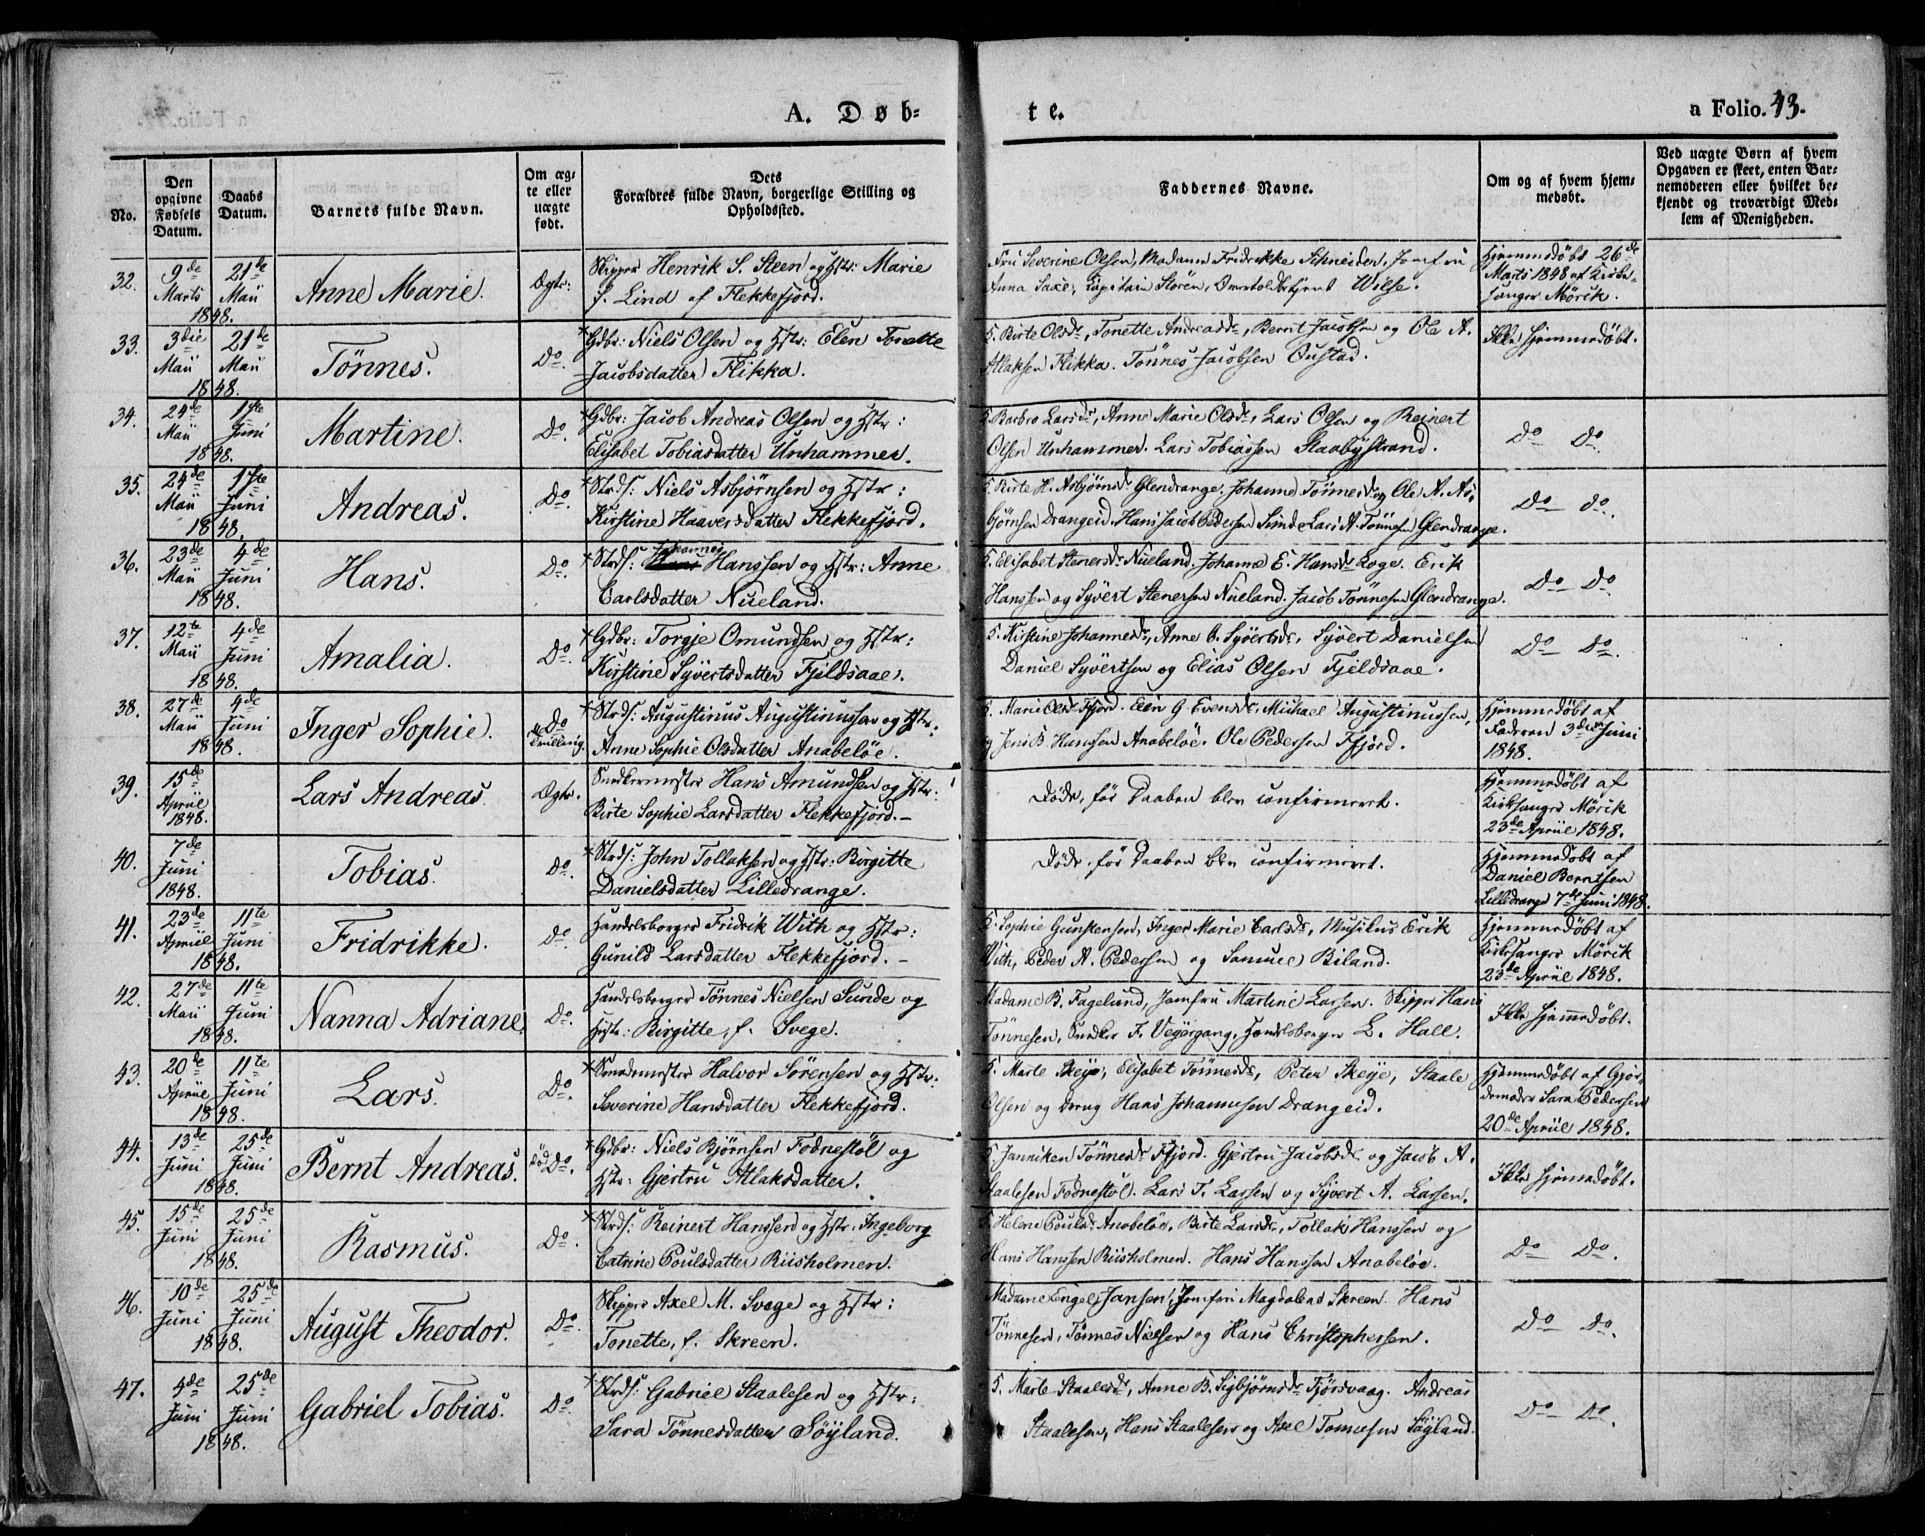 A. Døb-
te.
a Folio. 43.
No.
Den opgivne Fødsels Datum.
Daabs Datum.
Barnets fulde Navn.
Om ægte eller uægte født.
Dets Forældres fulde Navn, borgerlige Stilling og Opholdssted.
Faddernes Navne.
Om og af hvem hjemmedøbt.
Ved uægte Børn af hvem Opgaven er skeet, enten Barnemoderen eller hvilket bekjendt og troværdigt Medlem af Menigheden.
32. 9de Marts 1848. 21de Maii Anne Marie. Ægte:
Skipper Henrik S. Steen og Hstr: Marie
f. Lind af Flekkefjord.
Fru Severine Olsen, Madame Fridrikke Schneider, Jomfru
Anna Saxe, Capitain Stören, Overtoldbetjent Wilse.
Hjemmedøbt 26de
Marts 1848 af Kirke-
sanger Mörik.
33. 3die Maii 1848. 21de Maii Tönnes. Do.
*Gdbr: Niels Olsen og Hstr: Elen Tonette
Jacobsdatter Flikka.
5. Birte Olsdr, Tonette Andreasdr, Bernt Jacobsen og Ole A.
Atlaksen Flikka. Tönnes Jacobsen Oustad.
Ikke hjemmedøbt.
34. 24de Maii 1848. 1ste Juni Martine. Do.
*Gdbr: Jacob Andreas Olsen og Hstr:
Elisabet Tobiasdatter Unhammer.
5. Barbro Larsdr, Anne Marie Olsdr, Lars Olsen og Reinert
Olsen Unhammer. Lars Tobiassen Staabystrand.
Do Do
35. 24de Maii 1848. 1ste Juni Andreas. Do.
*Strds: Niels Asbjörnsen og Hstr:
Kirstine Haaversdatter Flekkefjord.
5. Birte H. Asbjörnsdr Glendrange. Johanne Tönnesdr og Ole A. As-
björnsen Drangeid. Hans Jacob Pedersen Sunde Lars A. Tönnesen Glendrange.
Do do.
36. 23de Maii 1848. 4de Juni Hans. Do.
*Strds: Johannes Hanssen og Hstr: Anne
Carlsdatter Nueland.
5. Elisabet Stenersdr Nueland. Johanne E. Hansdr Loge. Erik
Hanssen og Syvert Stenersen Nueland. Jacob Tönnesen Glendrange.
Do Do
37. 12te Maii 1848. 4de Juni Amalia. Do.
*Gdbr: Torgje Omundsen og Hstr:
Kirstine Syvertsdatter Fjeldsaae.
5. Kirstine Johannesdr, Anne C. Syvertsdr, Syvert Danielsen
Daniel Syvertsen og Elias Olsen Fjeldsaae.
Do Do.
38. 27de Maii 1848. 4de Juni Inger Sophie. Do
*Strds: Augustinus Augustinussen og Hstr:
Anne Sophie Olsdatter Anabelöe.
5. Marie Olsdr Ffjord. Elen G Evensdr, Michael Augustinussen,
og Jens B. Hanssen Anabelöe. Ole Pedersen Ffjord.
Hjemmedøbt af
Faderen 3die Juni
1848.
39. 15de Apriil 1848. Lars Andreas. Ægte.
Snedkermester Hans Amundsen og Hstr:
Birte Sophie Larsdatter Flekkefjord.
Døde, før Daaben blev confirmeret.
Hjemmedøbt af
Kirkesanger Mörik
23de Apriil 1848.
40. 7de Juni 1848. Tobias. Do.
*Strds: John Tollaksen og Hstr: Birgitte
Danielsdatter Lilledrange.
Døde, før Daaben blev confirmeret.
Hjemmedøbt af
Daniel Berntsen
Lilledrange 7de Juni 1848.
41. 23de Apriil 1848. 11te Juni Fridrikke. Do
Handelsborger Fridrik With og Hstr:
Gunild Larsdatter Flekkefjord.
5. Sophie Gundersen, Inger Marie Carlsdr, Musikus Erik
With, Peder A. Pedersen og Samuel Biland.
Hjemmedøbt af
Kirkesanger Mörik
23de Apriil 1848.
42. 27de Maii 1848. 11te Juni Nanna Adriane. Do.
Handelsborger Tönnes Nielsen Sunde og
Hstr: Birgitte, f. Svege.
Madame B. Fagelund, Jomfru Martine Larsen. Skipper Hans
Tönnesen, Snedker F. Veyergang, Handelsborger L. Hall.
Ikke hjemmedøbt.
43. 20de Apriil 1848. 11te Juni Lars. Do.
*Smedemester Halvor Sörensen og Hstr:
Severine Hansdatter Flekkefjord.
5. Marte Skeye, Elisabet Tönnesdr, Peter Skeye, Staale
Olsen og Hans Johannesen Drangeid.
Hjemmedøbt af Gjor-
demoder Sara Pedersen
20de Apriil 1848.
44. 13de Juni 1848. 25de Juni Bernt Andreas. Do.
*Gdbr: Niels Bjørnsen Fodnestöl og
Hstr: Gjertru Atlaksdatter.
5. Janniken Tönnesdr Ffjord. Gjertru Jacobsdr og Jacob A.
Staalesen Fodnestöl. Lars T. Larsen og Syvert A. Larsen.
Ikke hjemmedøbt.
45. 15de Juni 1848. 25de Juni Rasmus. Do.
*Strds: Reinert Hanssen og Hstr: Ingeborg
Catrine Poulsdatter Riisholmen.
5. Helene Poulsdr Anabelöe, Birte Larsdr, Tollak Hanssen og
Hans Hanssen Riisholmen. Hans Hanssen Anabelöe.
Do Do.
46. 10de Juni 1848. 25de Juni August Theodor. Do.
Skipper Axel M. Svege og Hstr:
Tonette, f. Skreen.
Madame Engel Jansen, Jomfru Magdalena Skreen. Hans
Tönnesen, Tönnes Nielsen og Hans Christophersen.
Do Do.
47. 4de Juni 1848. 25de Juni Gabriel Tobias. Do.
*Strds: Gabriel Staalesen og Hstr:
Sara Tönnesdatter Söyland.
5. Marte Staalesdr, Anne B. Sigbjörnsdr Fjörsvaag. Andreas
Staalesen, Hans Staalesen og Axel Tönnesen Söyland.
Do Do.